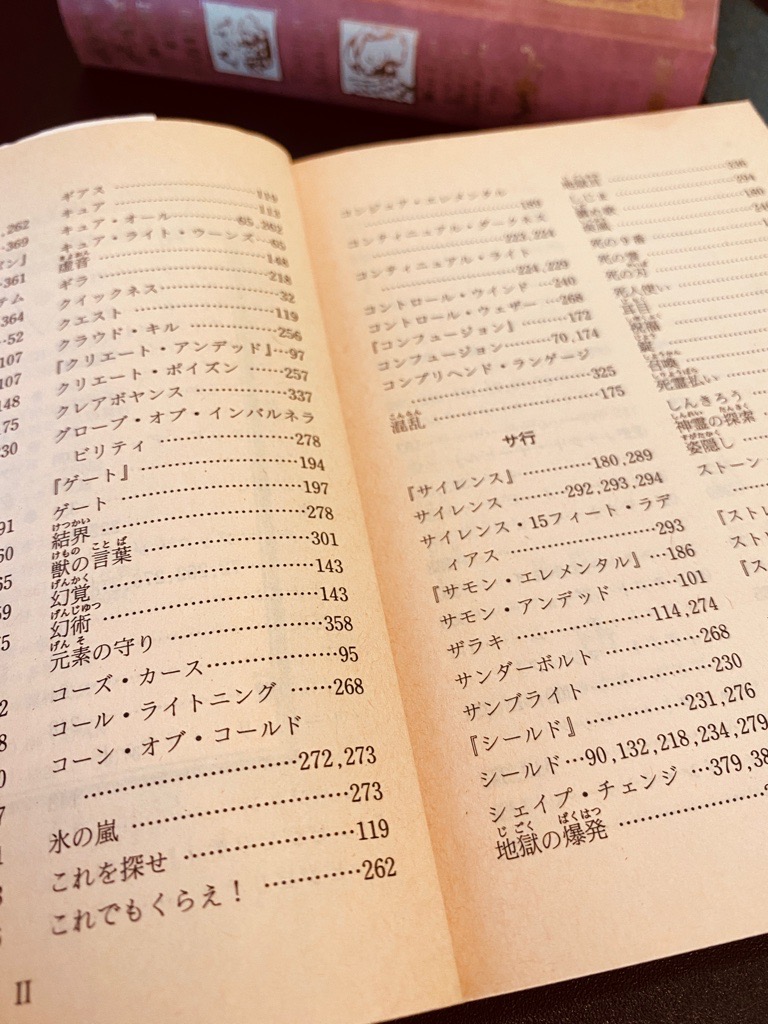 262
369
361
テム
364
52
107
107
148
175
230
ギアス
キュア
キュア・オール……65,262
キュア・ライト・ウーンズ…65
虚音……148
ギラ……218
クイックネス……32
クエスト……119
クラウド・キル……256
『クリエート・アンデッド』…97
クリエート・ポイズン……257
クレアボヤンス……337
グローブ・オブ・インバルネラ
ビリティ……278
『ゲート』……194
ゲート……197
結界……278
獣の言葉……301
幻覚……143
幻術……143
元素の守り……358
コーズ・カース……95
コール・ライトニング……268
コーン・オブ・コールド
……272,273
氷の嵐……273
これを探せ……119
これでもくらえ！……262
II
コンジュア・エレメンタル
……189
コンティニュアル・ダークネス
……223,224
コンティニュアル・ライト
……224,229
コントロール・ウインド…240
コントロール・ウェザー…268
『コンフュージョン』……172
コンフュージョン……70,174
コンプリヘンド・ランゲージ
……325
混乱……175
サ行
『サイレンス』……180,289
サイレンス……292,293,294
サイレンス・15フィート・ラデ
ィアス……293
『サモン・エレメンタル』…186
サモン・アンデッド……101
ザラキ……114,274
サンダーボルト……268
ザンブライト……230
『シールド』……231,276
シールド…90,132,218,234,279
シェイプ・チェンジ…379,38
地獄の爆発……
しじま……294
死の雲
死の刃
死人使い
耳目
祝福
召喚
死霊払い
しんきろう
神霊の探索
姿隠し
ストーン
『ストレ
スト
『ス